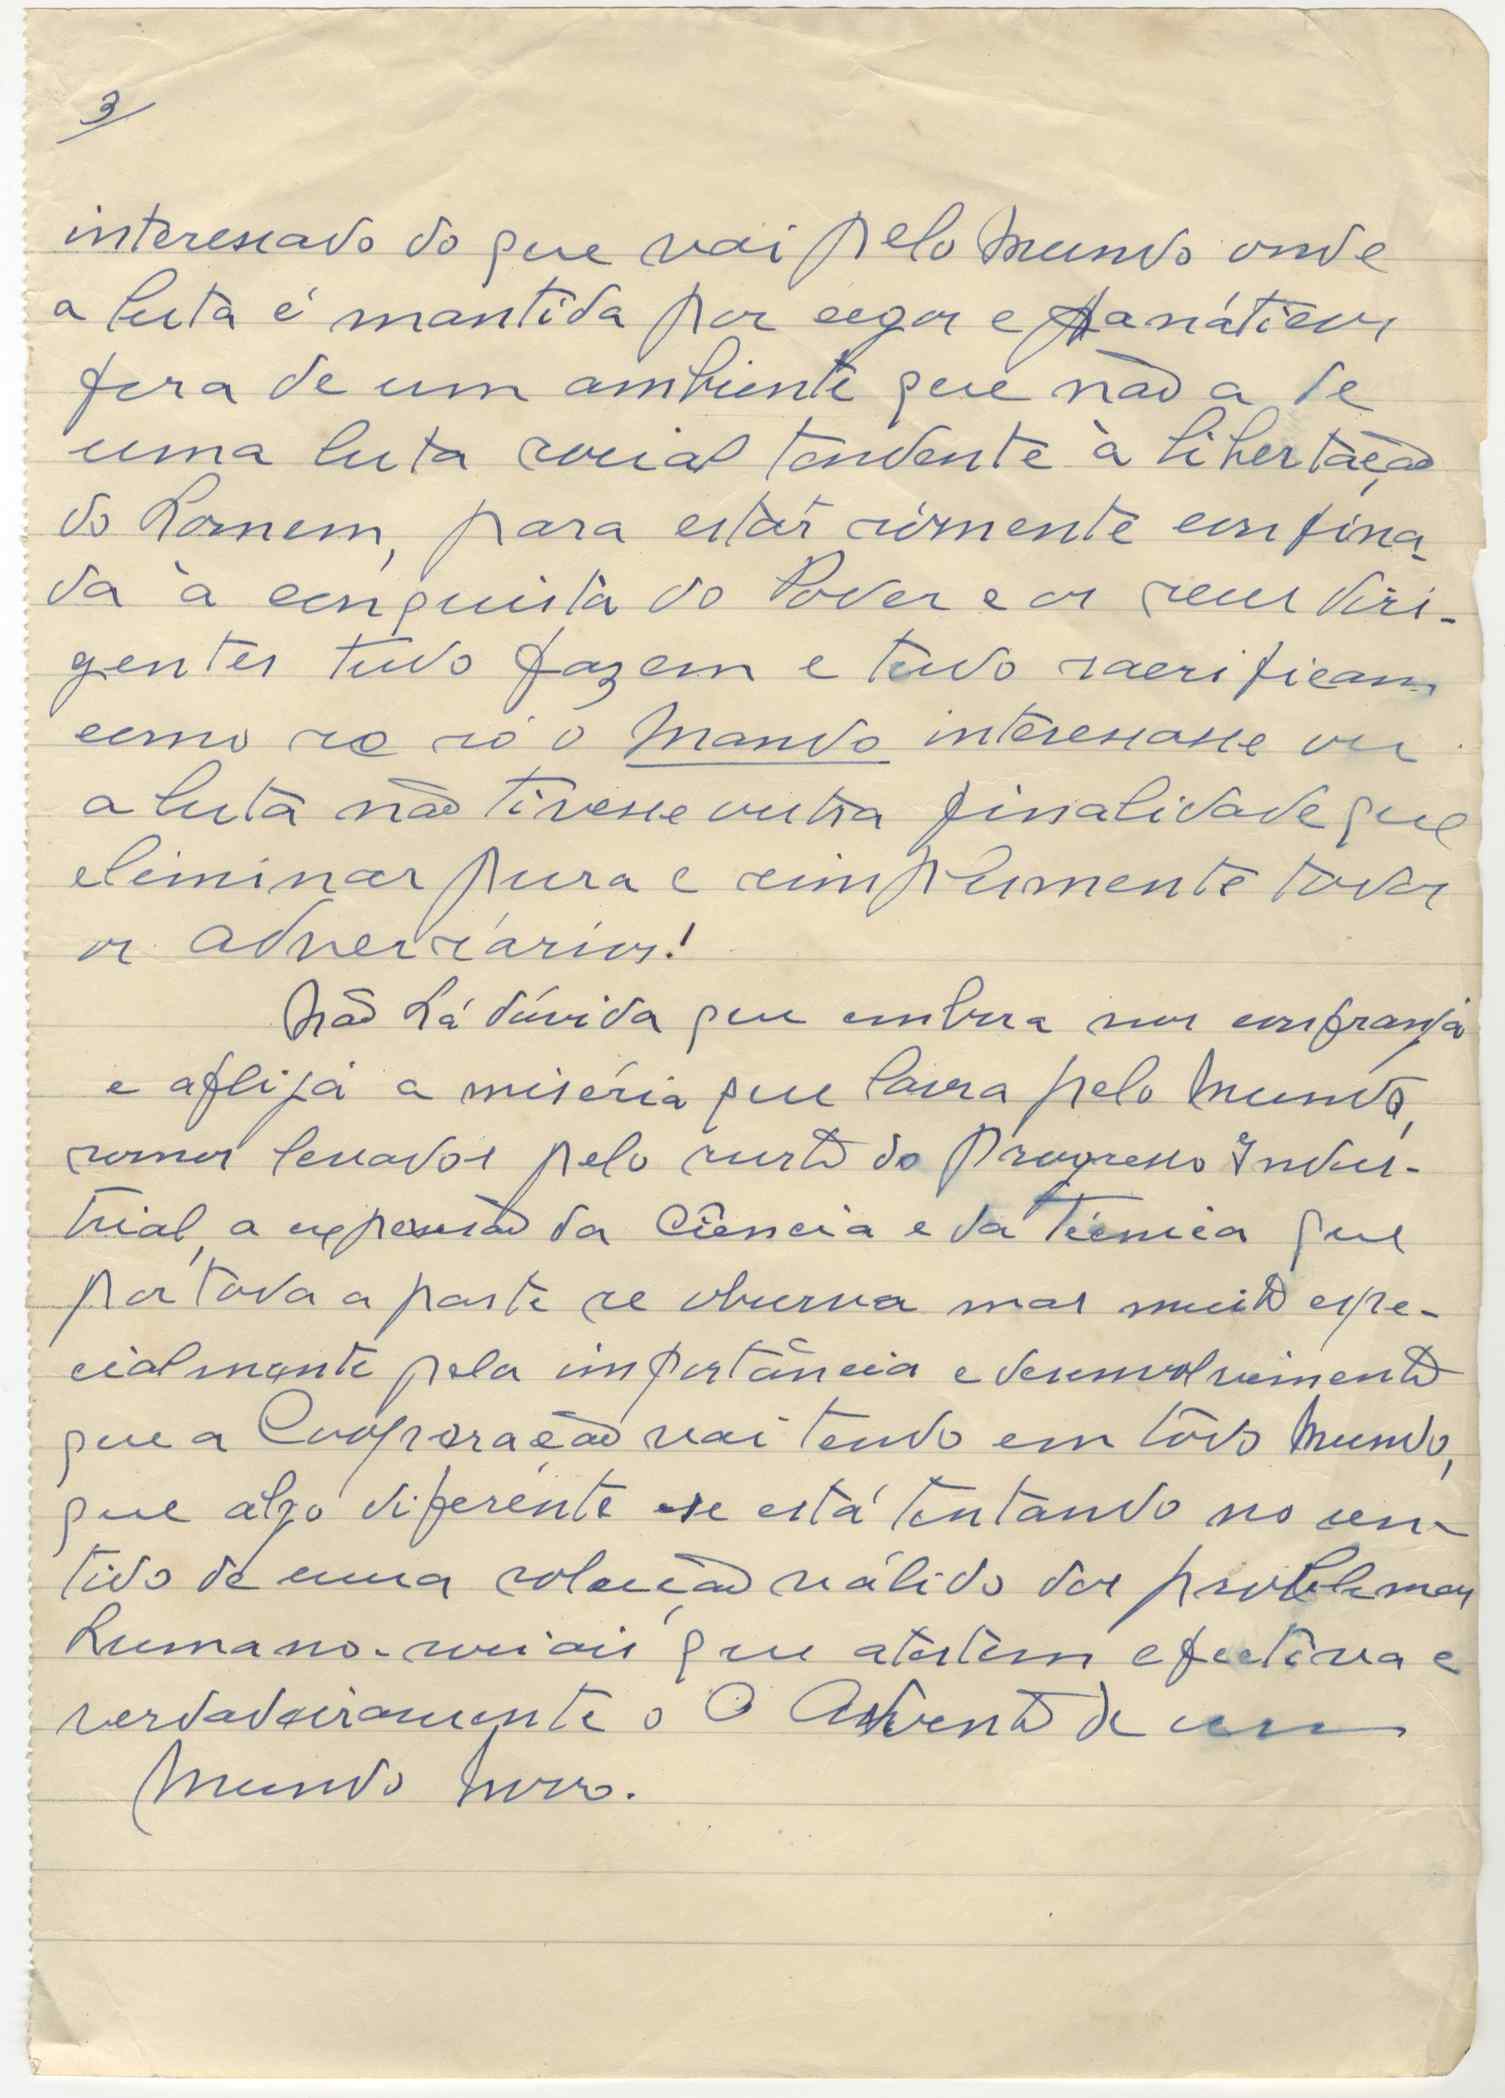 3
interessado do que vai pelo Mundo onde
a luta é mantida por cegos e fanáticos
fora de um ambiente que não a de
uma luta social tendente à libertação
do homem, para estar sòmente confina-
da à conquista do Poder e os seus diri-
gentes tudo fazem e tudo sacrificam
como se só o Mando interessasse ou
a luta não tivesse outra finalidade que
eliminar pura e simplesmente todos
os adversários!
Não há dúvida que embora nos confranja
e aflija a miséria que lavra pelo Mundo,
somos levados pelo surto do Progresso Indus-
trial, a expansão da Ciência e da Técnica que
por toda a parte se observa mas muito espe-
cialmente pela importância e desenvolvimento
que a Cooperação vai tendo em todo Mundo,
que algo diferente se está tentando no sen-
tido de uma solução válido dos problemas
humano-sociais que atestem efectiva e
verdadeiramente o O Advento de um
Mundo Novo.